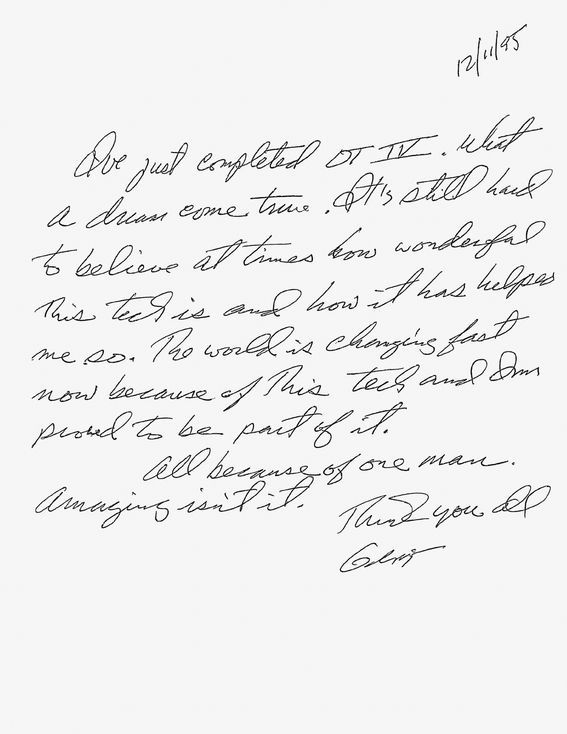 12/11/95
I've just completed OT IV. What
a dream come true. It's still hard
to believe at times how wonderful
this tech is and how it has helped
me so. The world is changing fast
now because of this tech and I'm
proud to be part of it.
All because of one man.
Amazing isn't it.
Thank you all